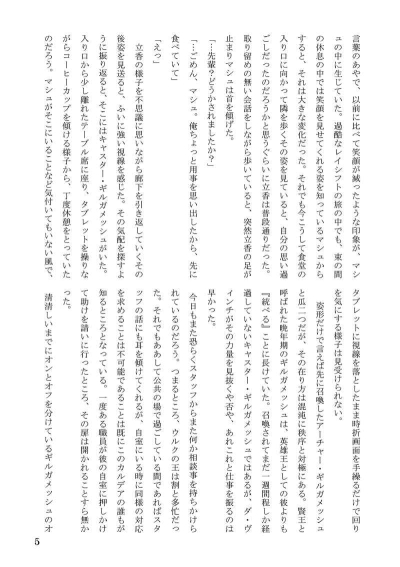 言葉のあやで、以前に比べて笑顔が減ったような印象が、マシ
ュの中に生じていた。過酷なレイシフトの旅の中でも、束の間
の休息の中では笑顔を見せてくれる姿を知っているマシュから
すると、それは大きな変化だった。それでも今こうして食堂の
入り口に向かって隣を歩くその姿を見ていると、自分の思い過
ごしだったのだろうかと思うぐらいに立香は普段通りだった。
取り留めの無い会話をしながら歩いていると、突然立香の足が
止まりマシュは首を傾げた。
「…先輩？どうかされましたか？」
「…ごめん、マシュ。俺ちょっと用事を思い出したから、先に
食べていて」
「えっ」
立香の様子を不思議に思いながら廊下を引き返していくその
後姿を見送ると、ふいに強い視線を感じた。その気配を探すよ
うに振り返ると、そこにはキャスター・ギルガメッシュがいた。
入り口から少し離れたテーブル席に座り、タブレットを操りな
がらコーヒーカップを傾ける様子から、丁度休憩をとっていた
のだろう。マシュがそこにいることなど気付いてもいない風で、
タブレットに視線を落としたまま時折画面を手繰るだけで回り
を気にする様子は見受けられない。
姿形だけで言えば先に召喚したアーチャー・ギルガメッシュ
と瓜二つだが、その在り方は混沌と秩序と対極にある。賢王と
呼ばれた晩年期のギルガメッシュは、英雄王としての彼よりも
『統べる』ことに長けていた。召喚されてまだ一週間程しか経
過していないキャスター・ギルガメッシュではあるが、ダ・ヴ
ィンチがその力量を見抜くや否や、あれこれと仕事を振るのは
早かった。
今日もまた恐らくスタッフからまた何か相談事を持ちかけら
れているのだろう。つまるところ、ウルクの王は割と多忙だっ
た。それでもああして公共の場で過ごしている間であればスタ
ッフの話にも耳を傾けてくれるが、自室にいる時に同様の対応
を求めることは不可能であることは既にこのカルデアの誰もが
知るところとなっている。一度ある職員が彼の自室に押しかけ
て助けを請いに行ったところ、その扉は開かれることすら無か
った。
清清しいまでにオンとオフを分けているギルガメッシュのオ
5